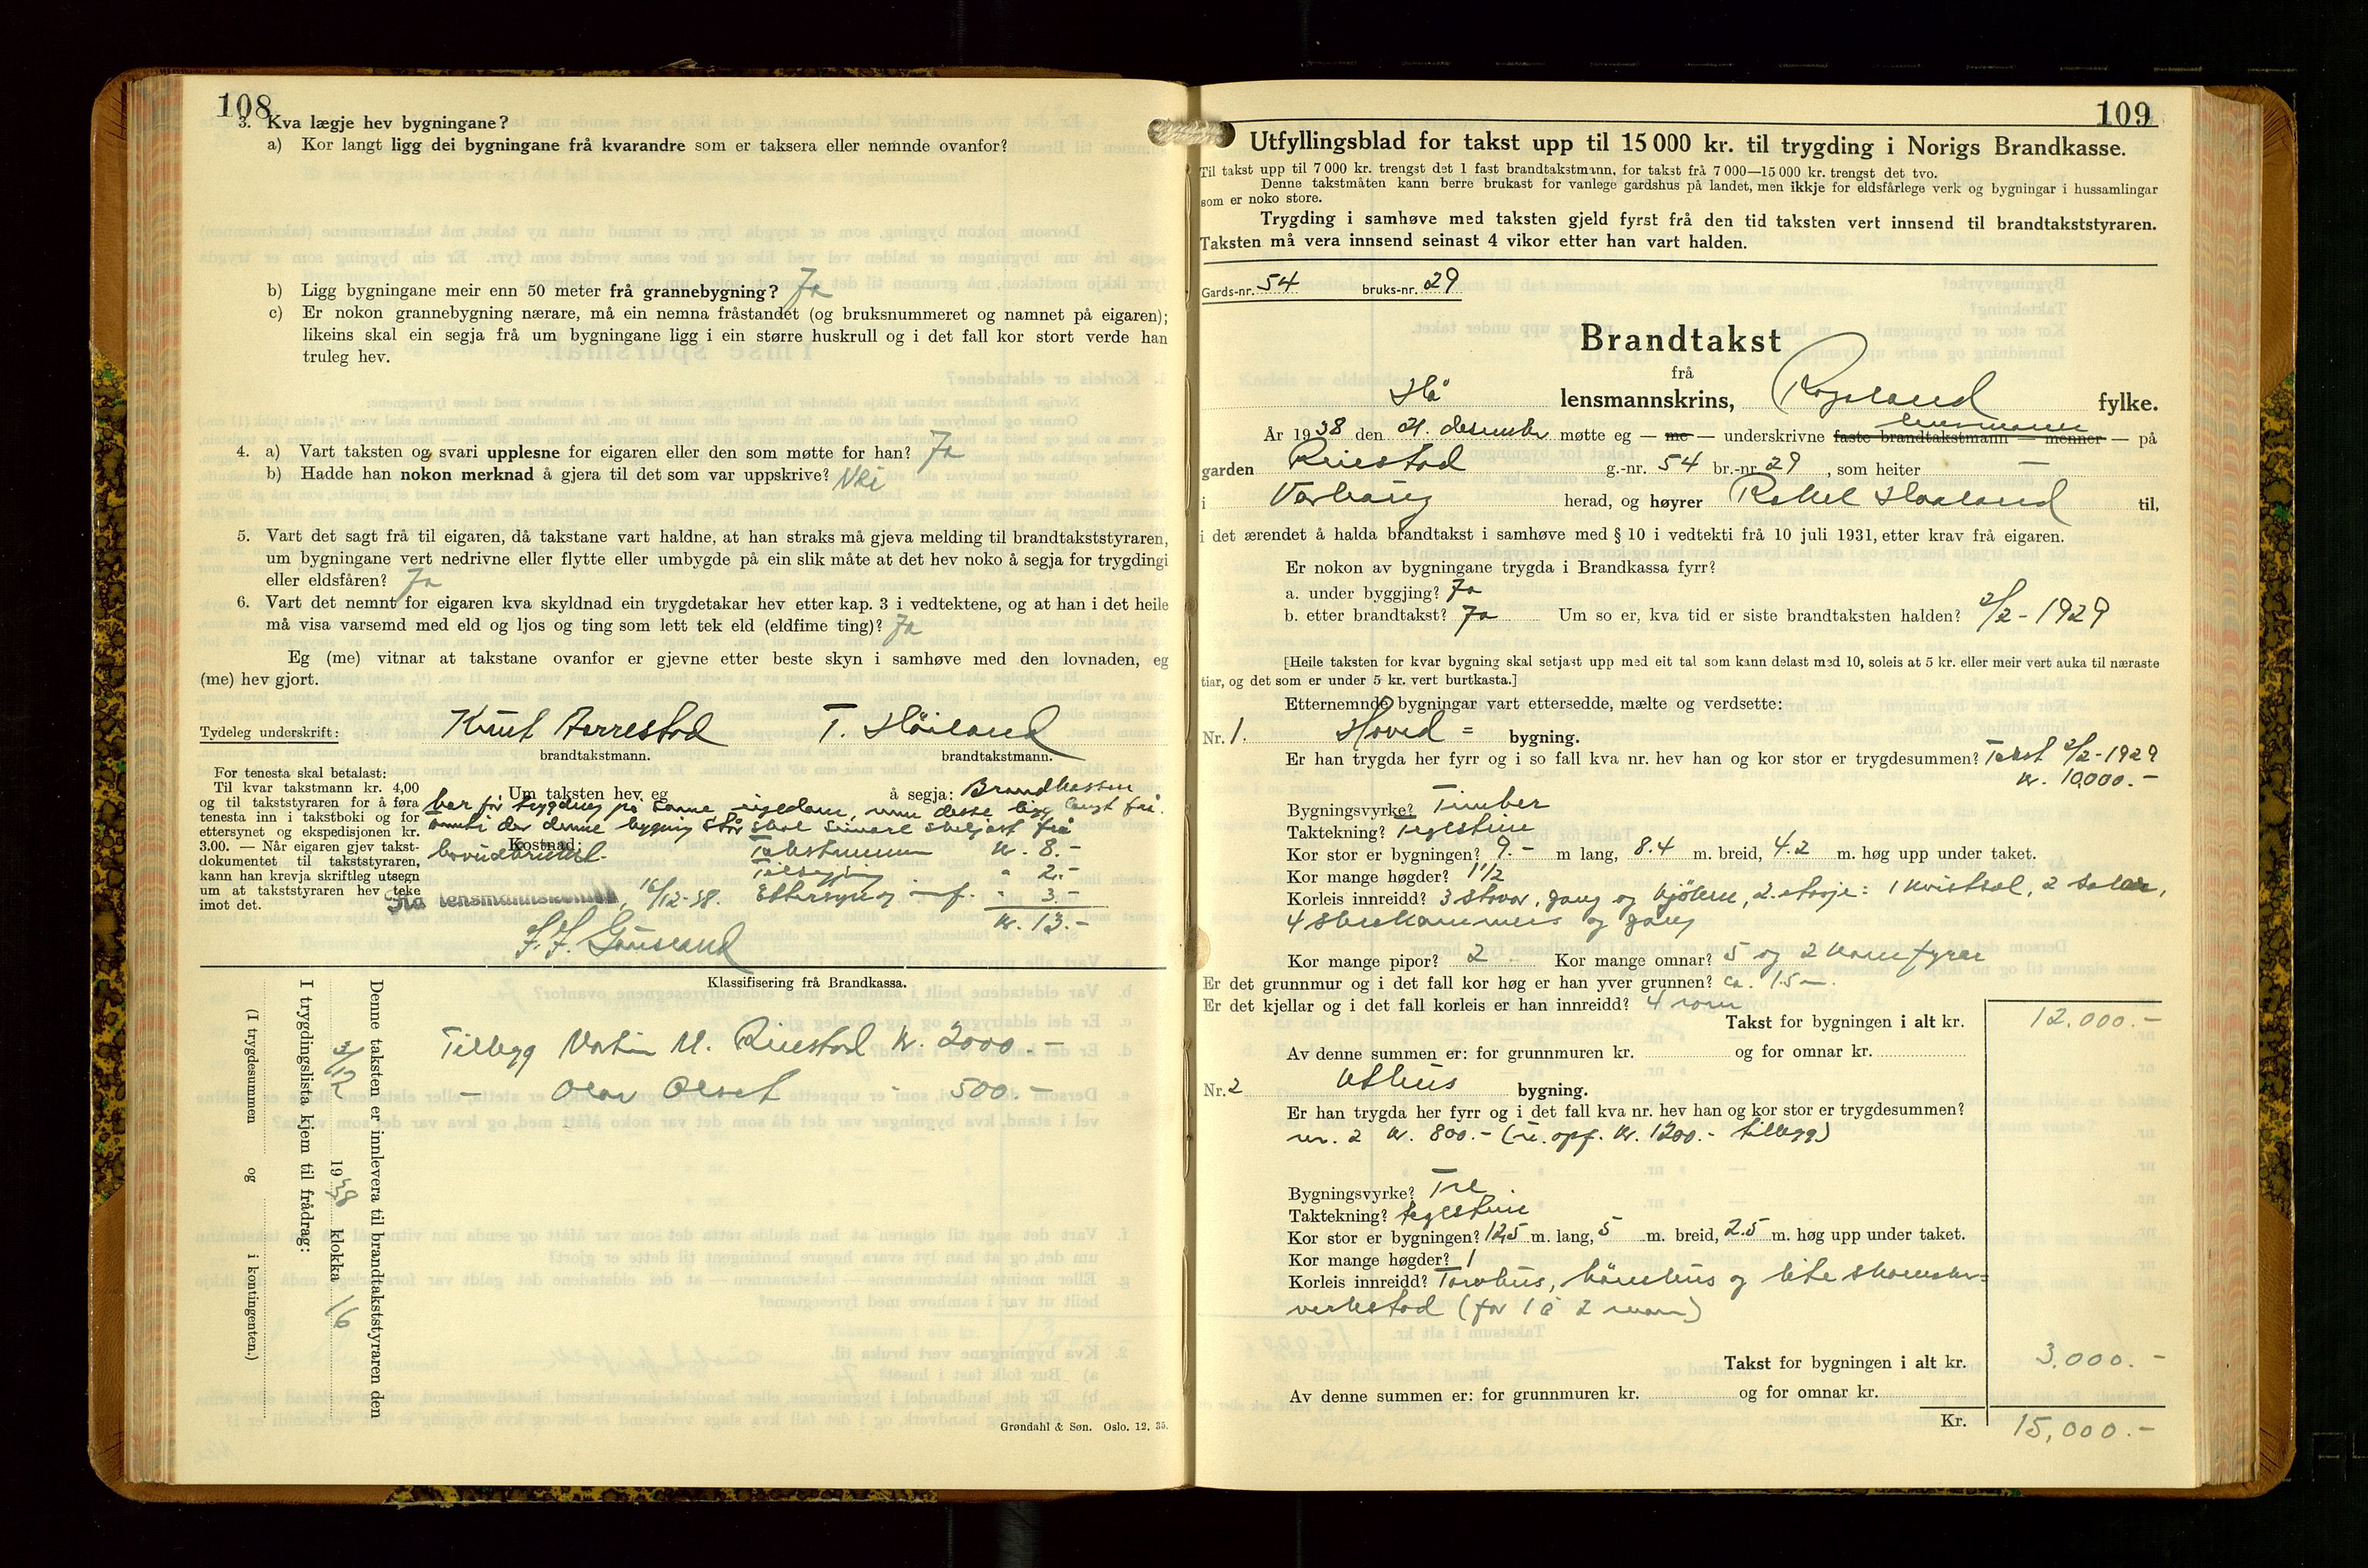 108
3. Kva lægje hev bygningane?
a) Kor langt ligg dei bygningane frå kvarandre som er taksera eller nemnde ovanfor?
b) Ligg bygningane meir enn 50 meter frå grannebygning? Ja
c) Er nokon grannebygning nærare, må ein nemna fråstandet (og bruksnummeret og namnet på eigaren);
likeins skal ein segja frå um bygningane ligg i ein større huskrull og i det fall kor stort verde han
truleg hev.
4. a) Vart taksten og svari upplesne for eigaren eller den som møtte for han? Ja
b) Hadde han nokon merknad å gjera til det som var uppskrive? Nei
5. Vart det sagt frå til eigaren, då takstane vart haldne, at han straks må gjeva melding til brandtakststyraren,
um bygningane vert nedrivne eller flytte eller umbygde på ein slik måte at det hev noko å segja for trygdingi
eller eldsfåren? Ja
6. Vart det nemnt for eigaren kva skyldnad ein trygdetakar hev etter kap. 3 i vedtektene, og at han i det heile
må visa varsemd med eld og ljos og ting som lett tek eld (eldfime ting)? Ja
Eg (me) vitnar at takstane ovanfor er gjevne etter beste skyn i samhøve med den lovnaden, eg
(me) hev gjort.
Tydeleg underskrift: Knut Aarrestad T. Höiland
brandtakstmann. brandtakstmann.
For tenesta skal betalast:
Til kvar takstmann kr. 4,00
og til takststyraren for å føra
tenesta inn i takstboki og for
ettersynet og ekspedisjonen kr.
3.00. — Når eigaren gjev takst-
dokumentet til takststyraren,
kann han krevja skriftleg utsegn
um at takststyraren hev teke
imot det.
Um taksten hev eg å segja: Brandkassen
har før trygding på same eigedom, men desse ligg langt frå.
der denne bygning står skal seinare skeljast frå
hovudbruket.
Kostnad: Takstmenn kr. 8.-
Tilsegjing " 2.-
Hå lensmannskontor, 16/12-38. Ettersyn og m.f. " 3.-
kr. 13.-
Klassifisering frå Brandkassa.
Tillegg Martin M. Reiestad kr. 2000.-
— Olav 500.-
Denne taksten er innlevera til brandtakststyraren den
1938 klokka 16
I trygdingslista kjem til frådrag:
(I trygdesummen og i kontingenten.)
Grøndahl & Søn. Oslo. 12. 35.
109
Utfyllingsblad for takst upp til 15 000 kr. til trygding i Norigs Brandkasse.
Til takst upp til 7 000 kr. trengst det 1 fast brandtakstmann, for takst frå 7 000—15 000 kr. trengst det tvo.
Denne takstmåten kann berre brukast for vanlege gardshus på landet, men ikkje for eldsfårlege verk og bygningar i hussamlingar
som er noko store.
Trygding i samhøve med taksten gjeld fyrst frå den tid taksten vert innsend til brandtakststyraren.
Taksten må vera innsend seinast 4 vikor etter han vart halden.
Gards-nr. 54 bruks-nr. 29
Brandtakst
frå
Hå lensmannskrins, Rogaland fylke.
lensmann
År 1938 den 21. desember møtte eg — me — underskrivne faste brandtakstmann — menner — på
garden Reiestad g.-nr. 54 br.-nr. 29, som heiter —
i Varhaug herad, og høyrer Rakel Haaland til,
i det ærendet å halda brandtakst i samhøve med § 10 i vedtekti frå 10 juli 1931, etter krav frå eigaren.
Er nokon av bygningane trygda i Brandkassa fyrr?
a. under byggjing? Ja
b. etter brandtakst? Ja Um so er, kva tid er siste brandtaksten halden? 2/2 - 1929
[Heile taksten for kvar bygning skal setjast upp med eit tal som kann delast med 10, soleis at 5 kr. eller meir vert auka til næraste
tiar, og det som er under 5 kr. vert burtkasta.]
Etternemnde bygningar vart ettersedde, mælte og verdsette:
Nr. 1. Hoved = bygning.
Er han trygda her fyrr og i so fall kva nr. hev han og kor stor er trygdesummen? Takst 2/2-1929
kr. 10,000.-
Bygningsvyrke? Timber
Taktekning? Teglstein
Kor stor er bygningen? 9.- m lang, 8.4 m. breid, 4.2 m. høg upp under taket.
Kor mange høgder? 1 1/2
Korleis innreidd? 3 stover, gang og kjøken, 2. etasje: 1 kvistsal, 2 salar,
4 sovekammers og gang
Kor mange pipor? 2 Kor mange omnar? 5 og 2 komfyrer
Er det grunnmur og i det fall kor høg er han yver grunnen? ca. 1.5 m.
Er det kjellar og i det fall korleis er han innreidd? 4 rom
Takst for bygningen i alt kr. 12,000.-
Av denne summen er: for grunnmuren kr. og for omnar kr.
Nr. 2 Uthus bygning.
Er han trygda her fyrr og i det fall kva nr. hev han og kor stor er trygdesummen?
nr. 2 kr. 800.- (u. opf. kr. 1200.- tillegg)
Bygningsvyrke? Tre.
Taktekning? teglstein
Kor stor er bygningen? 12,5 m. lang, 5 m. breid, 2.5 m. høg upp under taket.
Kor mange høgder? 1
Korleis innreidd? Torvhus, hönehus og lite skomaker=
verkstad (for 1 à 2 mann)
Takst for bygningen i alt kr. 3,000.-
Av denne summen er: for grunnmuren kr. og for omnar kr.
Kr. 15,000.-